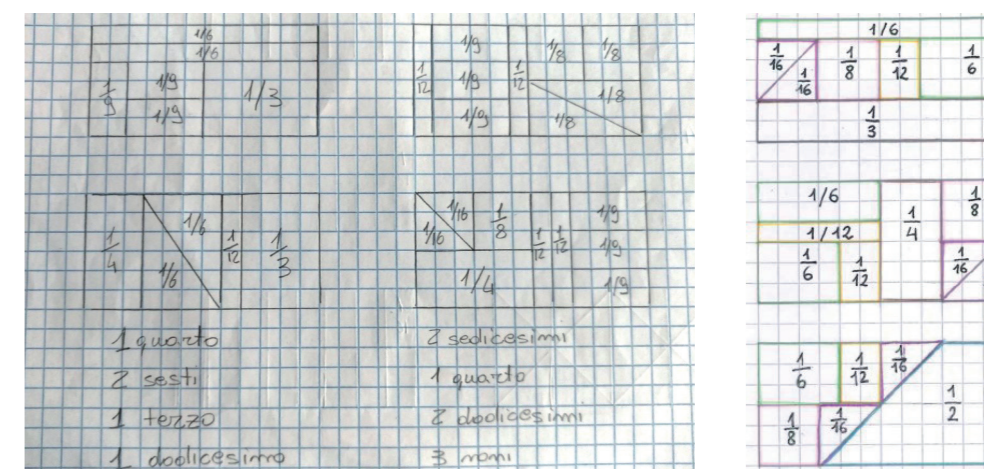 1/6
1/6
1/9 1/9 1/3
1/9
1/9 1/8 1/8
1/12 1/9 1/12 1/8
1/9 1/8
1/4 1/6 1/12 1/3
1/6
1/16 1/8 1/9
1/16 1/12 1/12 1/9
1/4 1/9
1 quarto
2 sesti
1 terzo
1 dodicesimo
2 sedicesimi
1 quarto
2 dodicesimi
3 noni
1/6
1/16 1/8 1/12 1/6
1/16
1/3
1/6 1/4 1/8
1/12
1/6 1/12 1/16
1/6 1/12 1/16 1/2
1/8 1/16